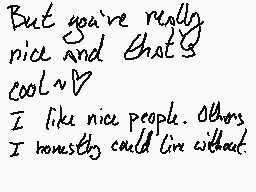 But you're really
nice and that's
cool ~ ♡
I like nice people. Others
I honestly could live without.